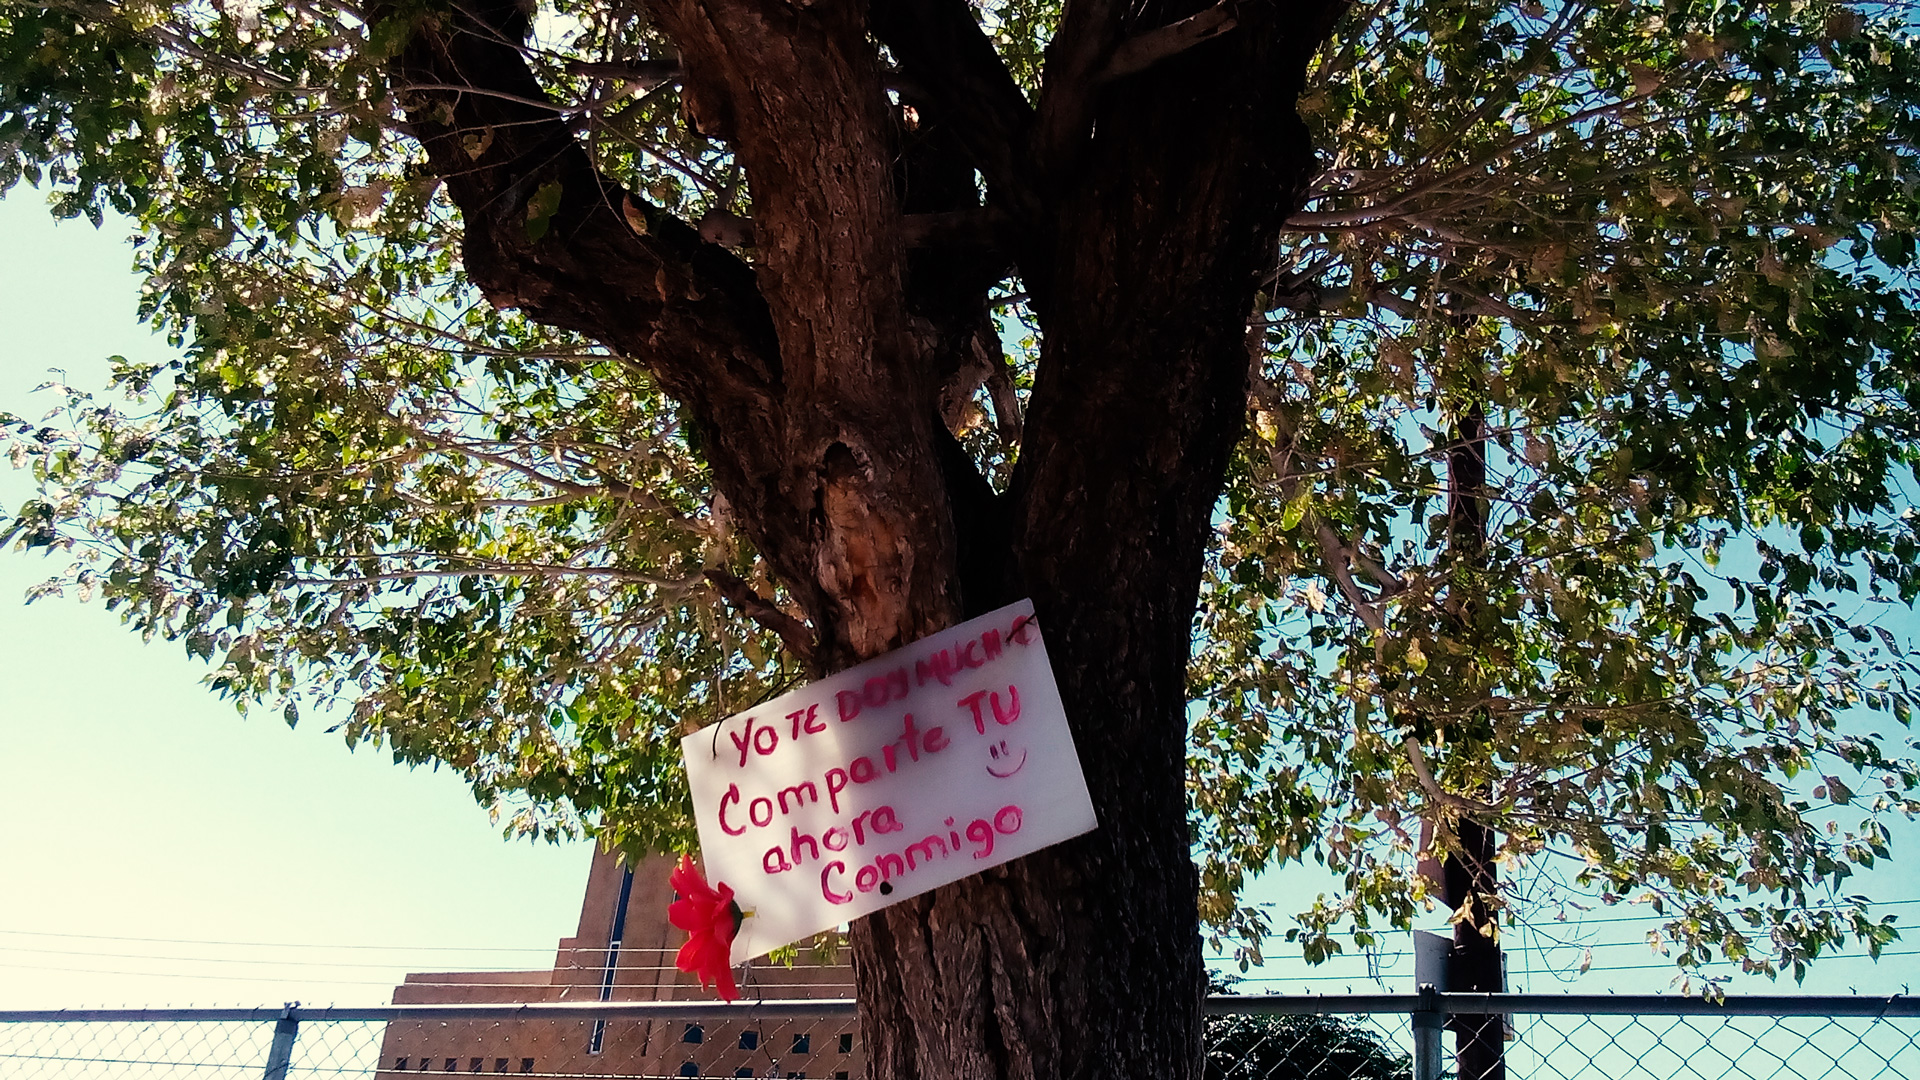 YO TE DOY MUCHO
Comparte TU
ahora
Conmigo